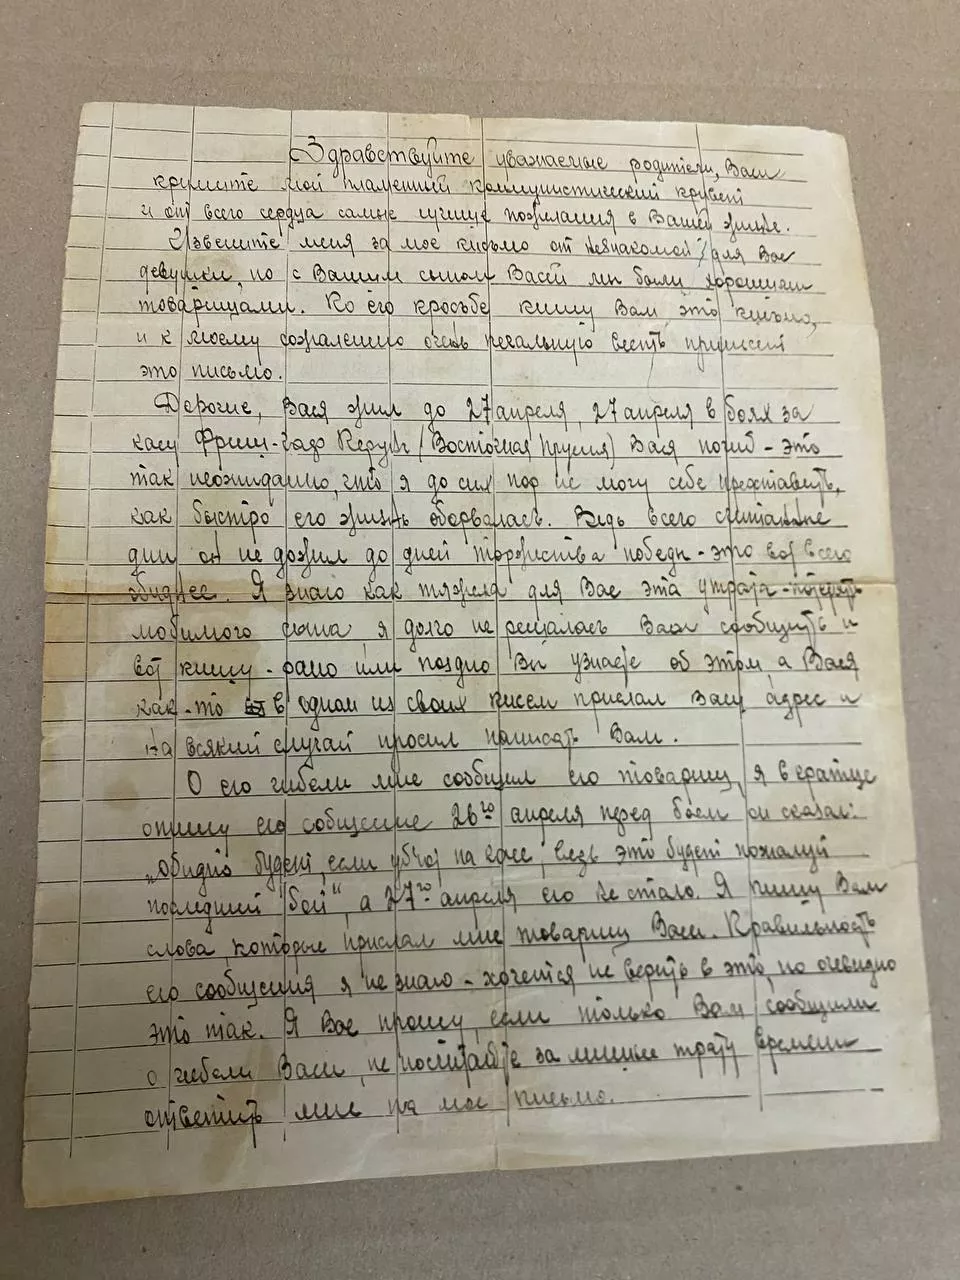 Здравствуйте уважаемые родители, Васи
примите мой пламенный коммунистический привет
и от всего сердца самые лучшие пожелания в Вашей жизни.
Извените меня за мое письмо от незнакомой для Вас
девушки, но с Вашим сыном Васей мы были хорошими
товарищами. По его просьбе пишу Вам это письмо,
и к моему сожалению очень печальную весть принесет
это письмо.
Дорогие, Вася жил до 27 апреля, 27 апреля в боях за
косу Фриш- (Восточная Прусия) Вася погиб - это
так неожиданно, что я до сих пор не могу себе представить,
как быстро его жизнь оборвалась. Ведь всего считанные
дни он не дожил до дней торжества победы - это вот всего
обиднее. Я знаю как тяжела для Вас эта утрата - потерять
любимого сына я долго не решалась Вам сообщить и
вот пишу - рано или поздно Вы узнаете об этом а Вася
как-то в одном из своих писем прислал Ваш адрес и
на всякий случай просил написать Вам.
О его гибели мне сообщил его товарищ, я вкратце
опишу его собщение 26го апреля перед боем он сказал:
„Обидно будет, если убъют на косе, ведь это будет пожалуй
последний бой", а 27го апреля его не стало. Я пишу Вам
слова которые прислал мне товарищ Васи. Правильность
его сообщения я не знаю - хочется не верить в это, но очевидно
это так. Я Вас прошу, если только Вам сообщили
о гибели Васи, не посчитайте за лишнее трату времени
ответить мне на мое письмо.